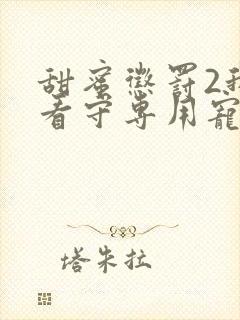 甜蜜懲罰2我
看守専用寵
塔朱拉